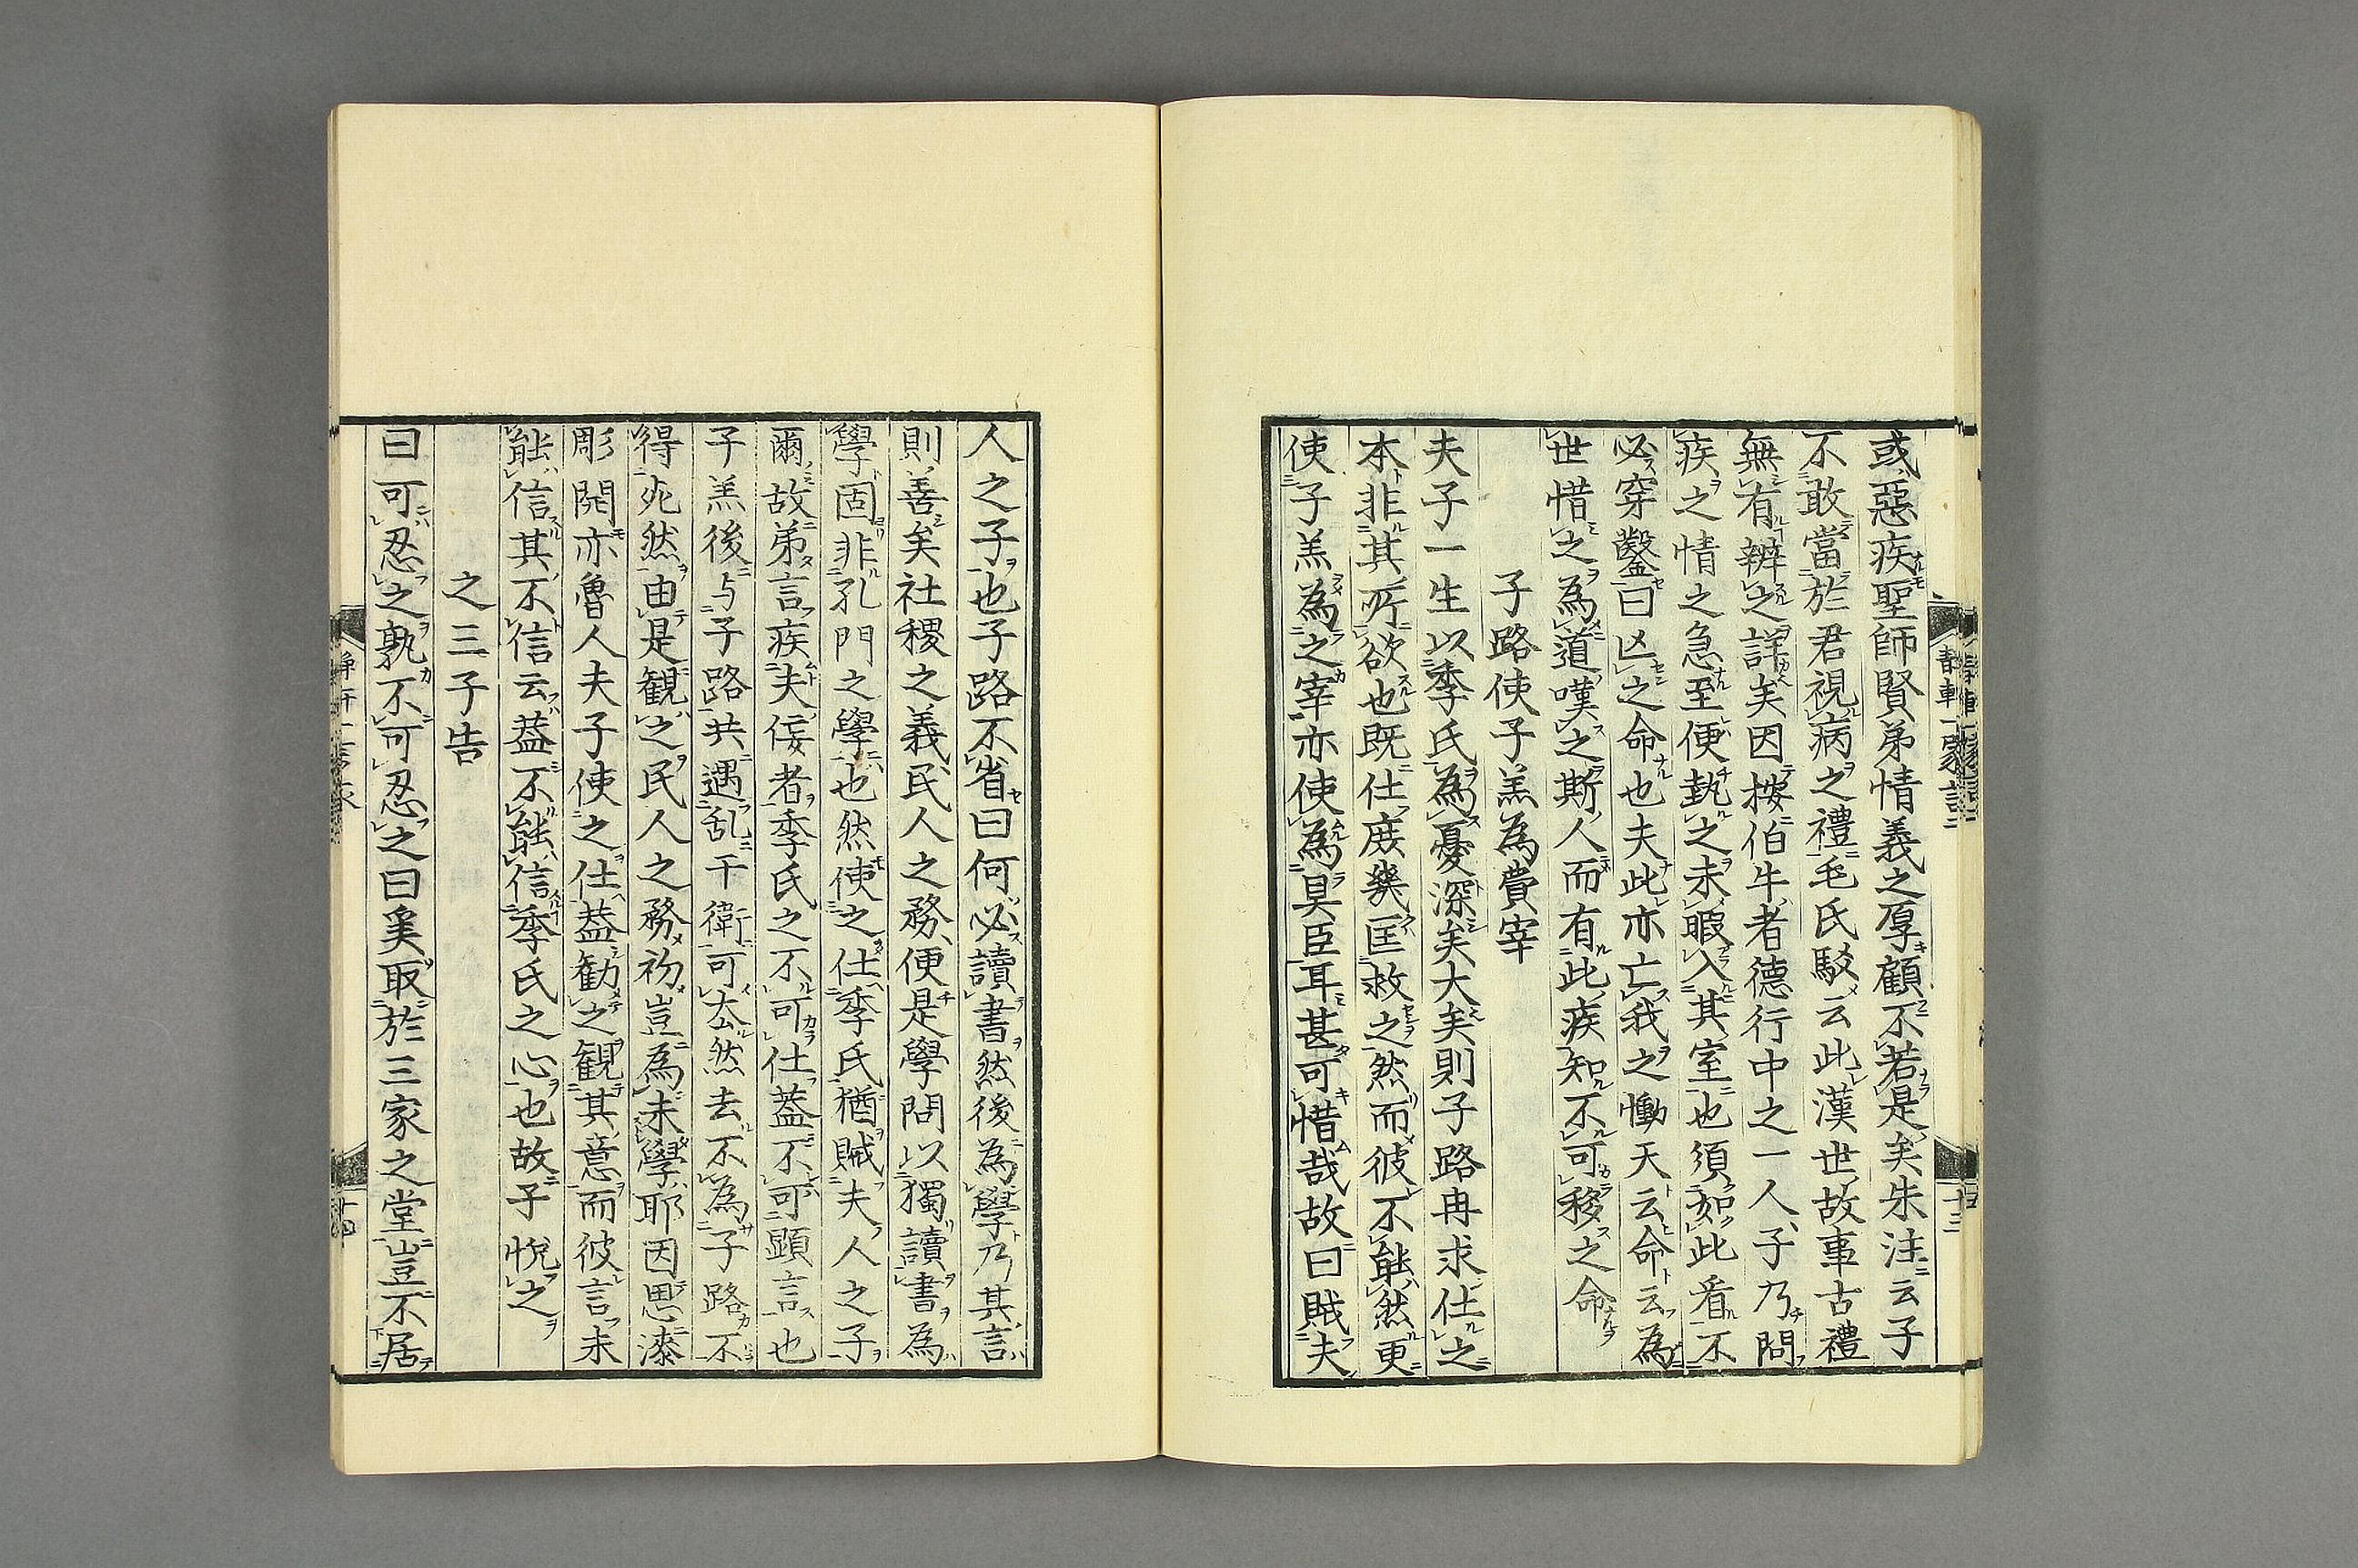 或惡疾聖師賢弟情義之厚顧不若是矣朱注云子
不敢當於君視病之禮毛氏駁云此漢世故事古禮
無有辨之詳矣因按伯牛者德行中之一人子乃問
疾之情之急至便執之未暇入其室也須如此看不
必穿鑿曰凶之命也夫此亦亡我之慟天云命云為
世惜之為道嘆之斯人而有此疾知不可移之命
子路使子羔為費宰
夫子一生以季氏為憂深矣大矣則子路冉求仕之
本非其所欲也既仕庶幾匡救之然而彼不能然更
使子羔為之宰亦使為具臣耳甚可惜哉故曰賊夫
人之子也子路不省曰何必讀書然後為學乃其言
則善矣社稷之義民人之務便是學問以獨讀書為
學固非孔門之學也然使之仕季氏猶賊夫人之子
爾故弟言疾夫佞者季氏之不可仕蓋不可顕言也
子羔後与子路共遇乱干衛可厺然去不為子路不
得死然由是観之民人之務初豈為未學耶因思漆
彫開亦魯人夫子使之仕蓋勧之観其意而彼言未
能信其不信云蓋不能信季氏之心也故子悅之
之三子告
曰可忍之孰不可忍之曰奚取於三家之堂豈不居